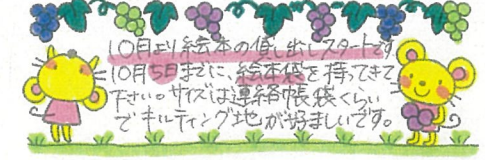 10月より絵本の貸し出しスタートです
10月5日までに、絵本袋を持ってきて
下さい。サイズは連絡帳袋くらい
でキルティング地が好ましいです。